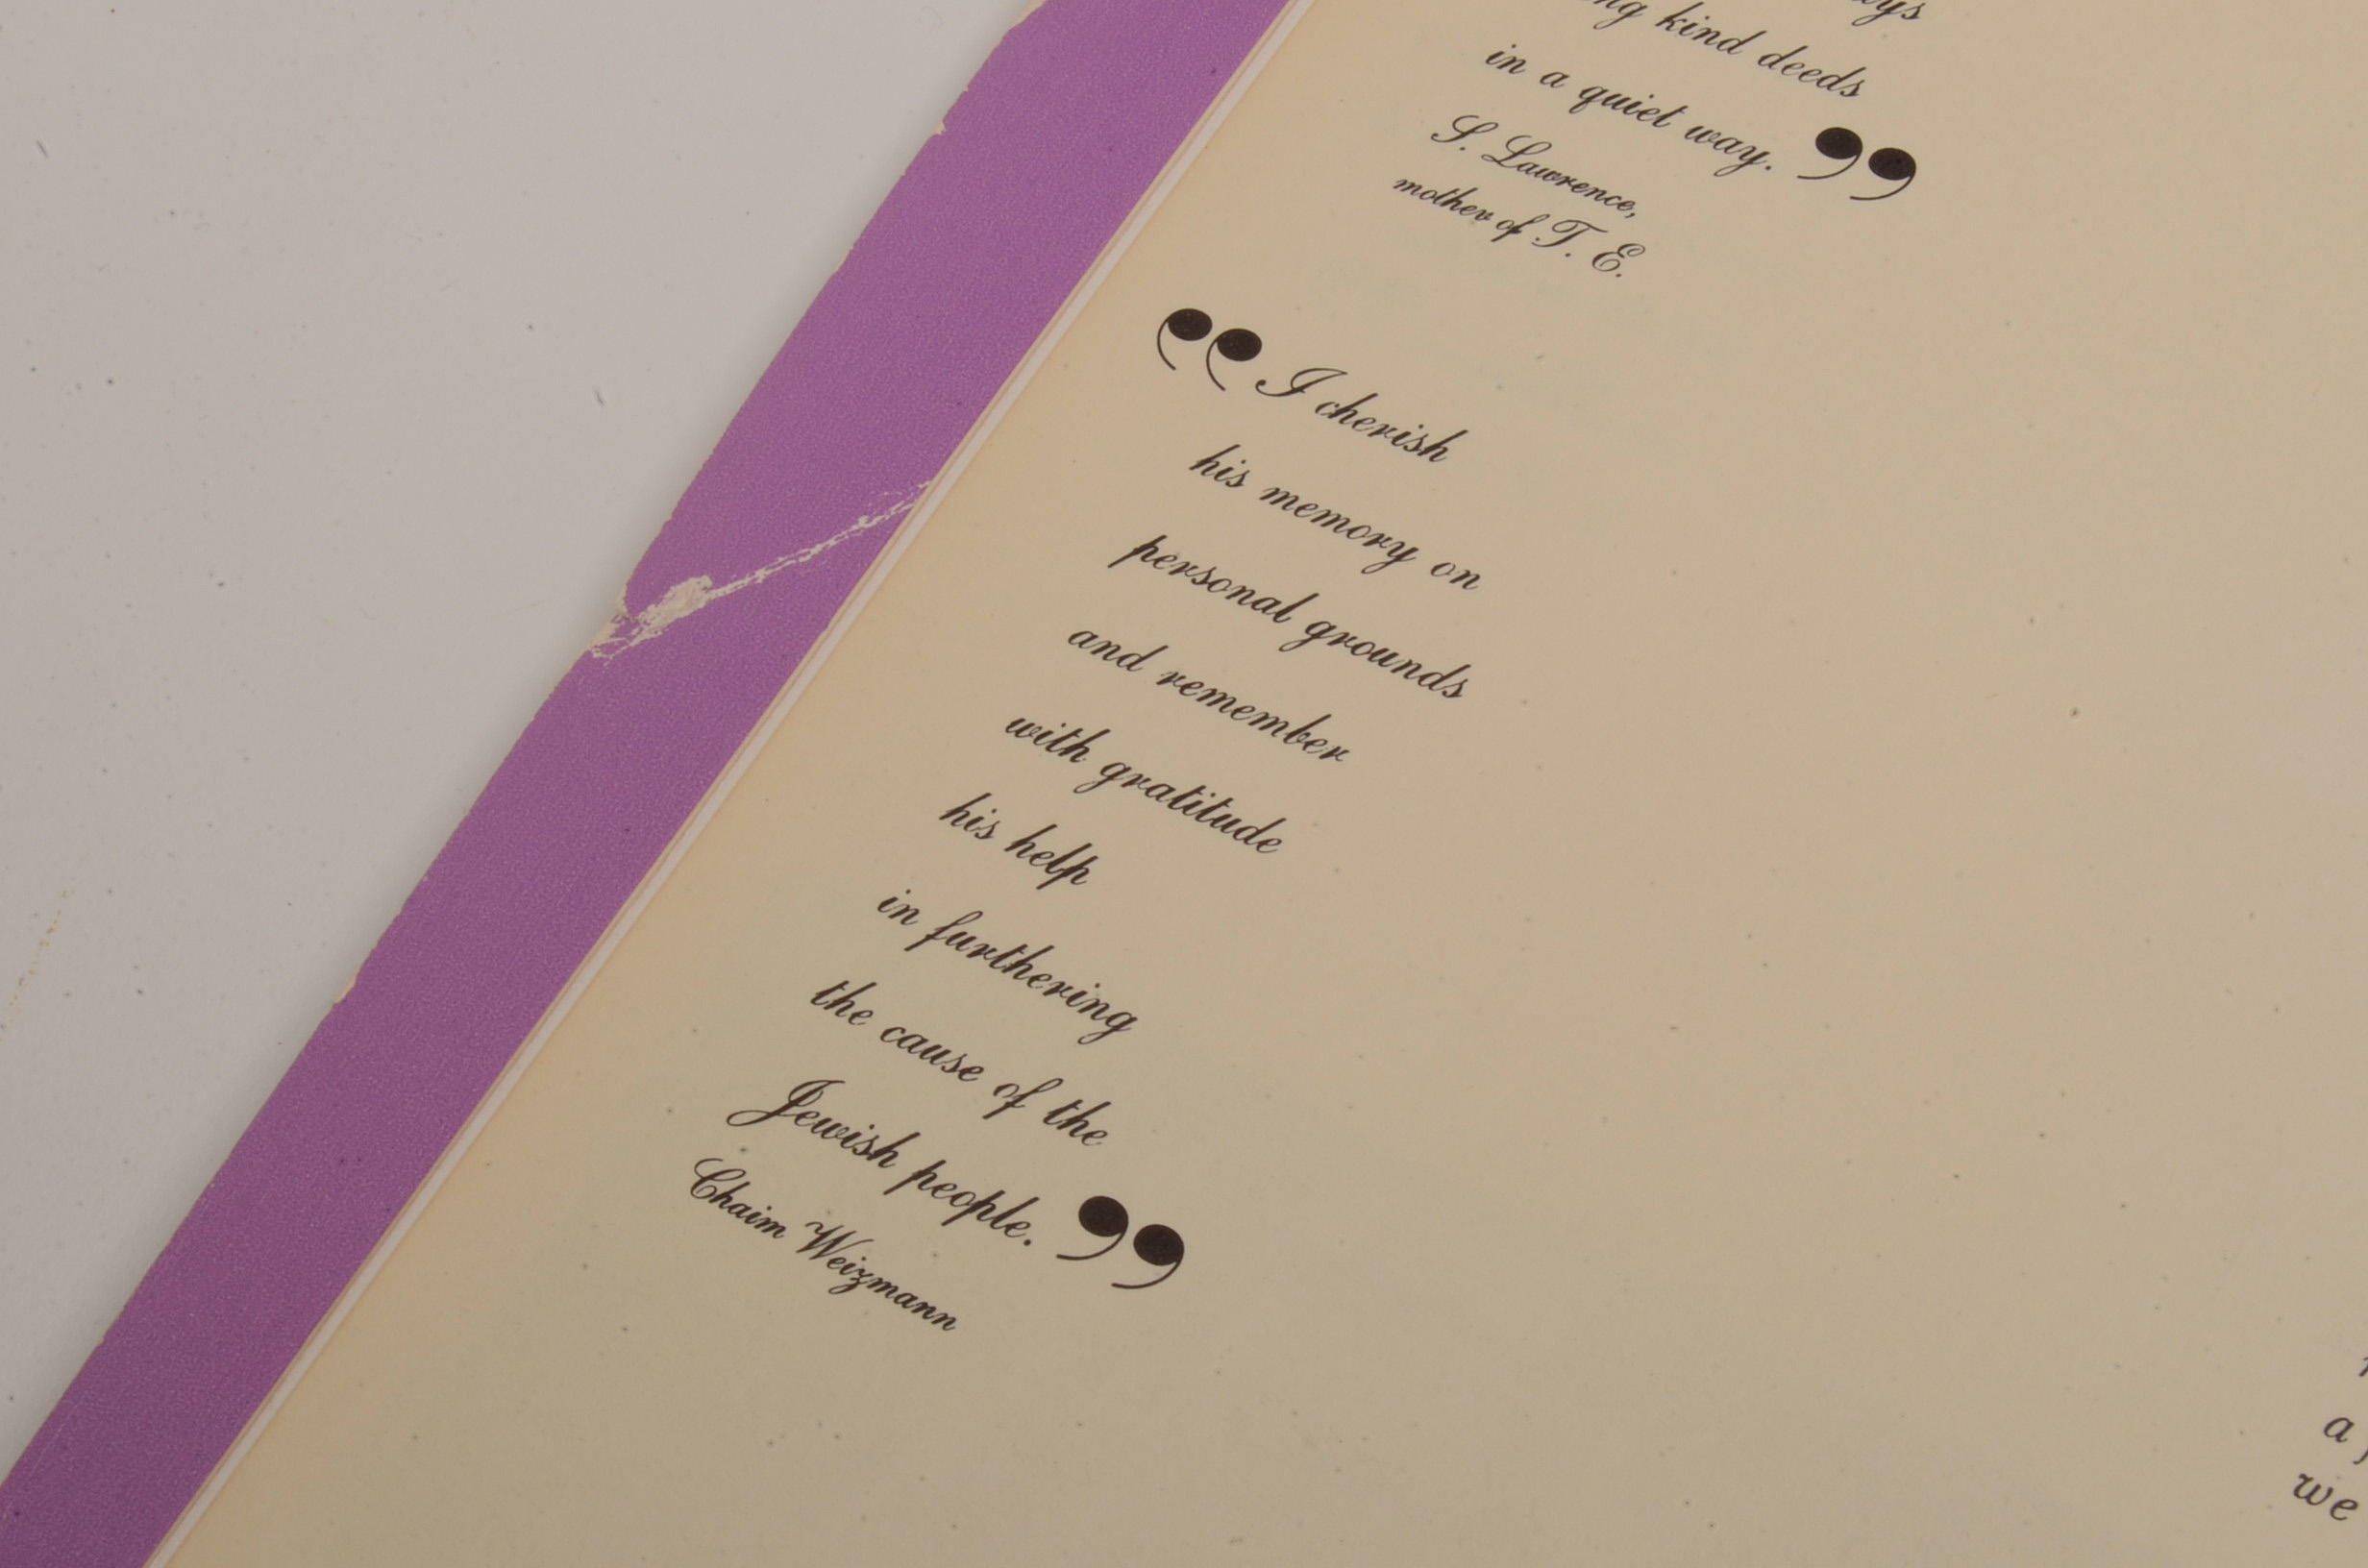 kind deeds
in a quiet way. ”
S. Lawrence,
mother of T. E.
“ I cherish
his memory on
personal grounds
and remember
with gratitude
his help
in furthering
the cause of the
Jewish people. ”
Chaim Weizmann
a
we